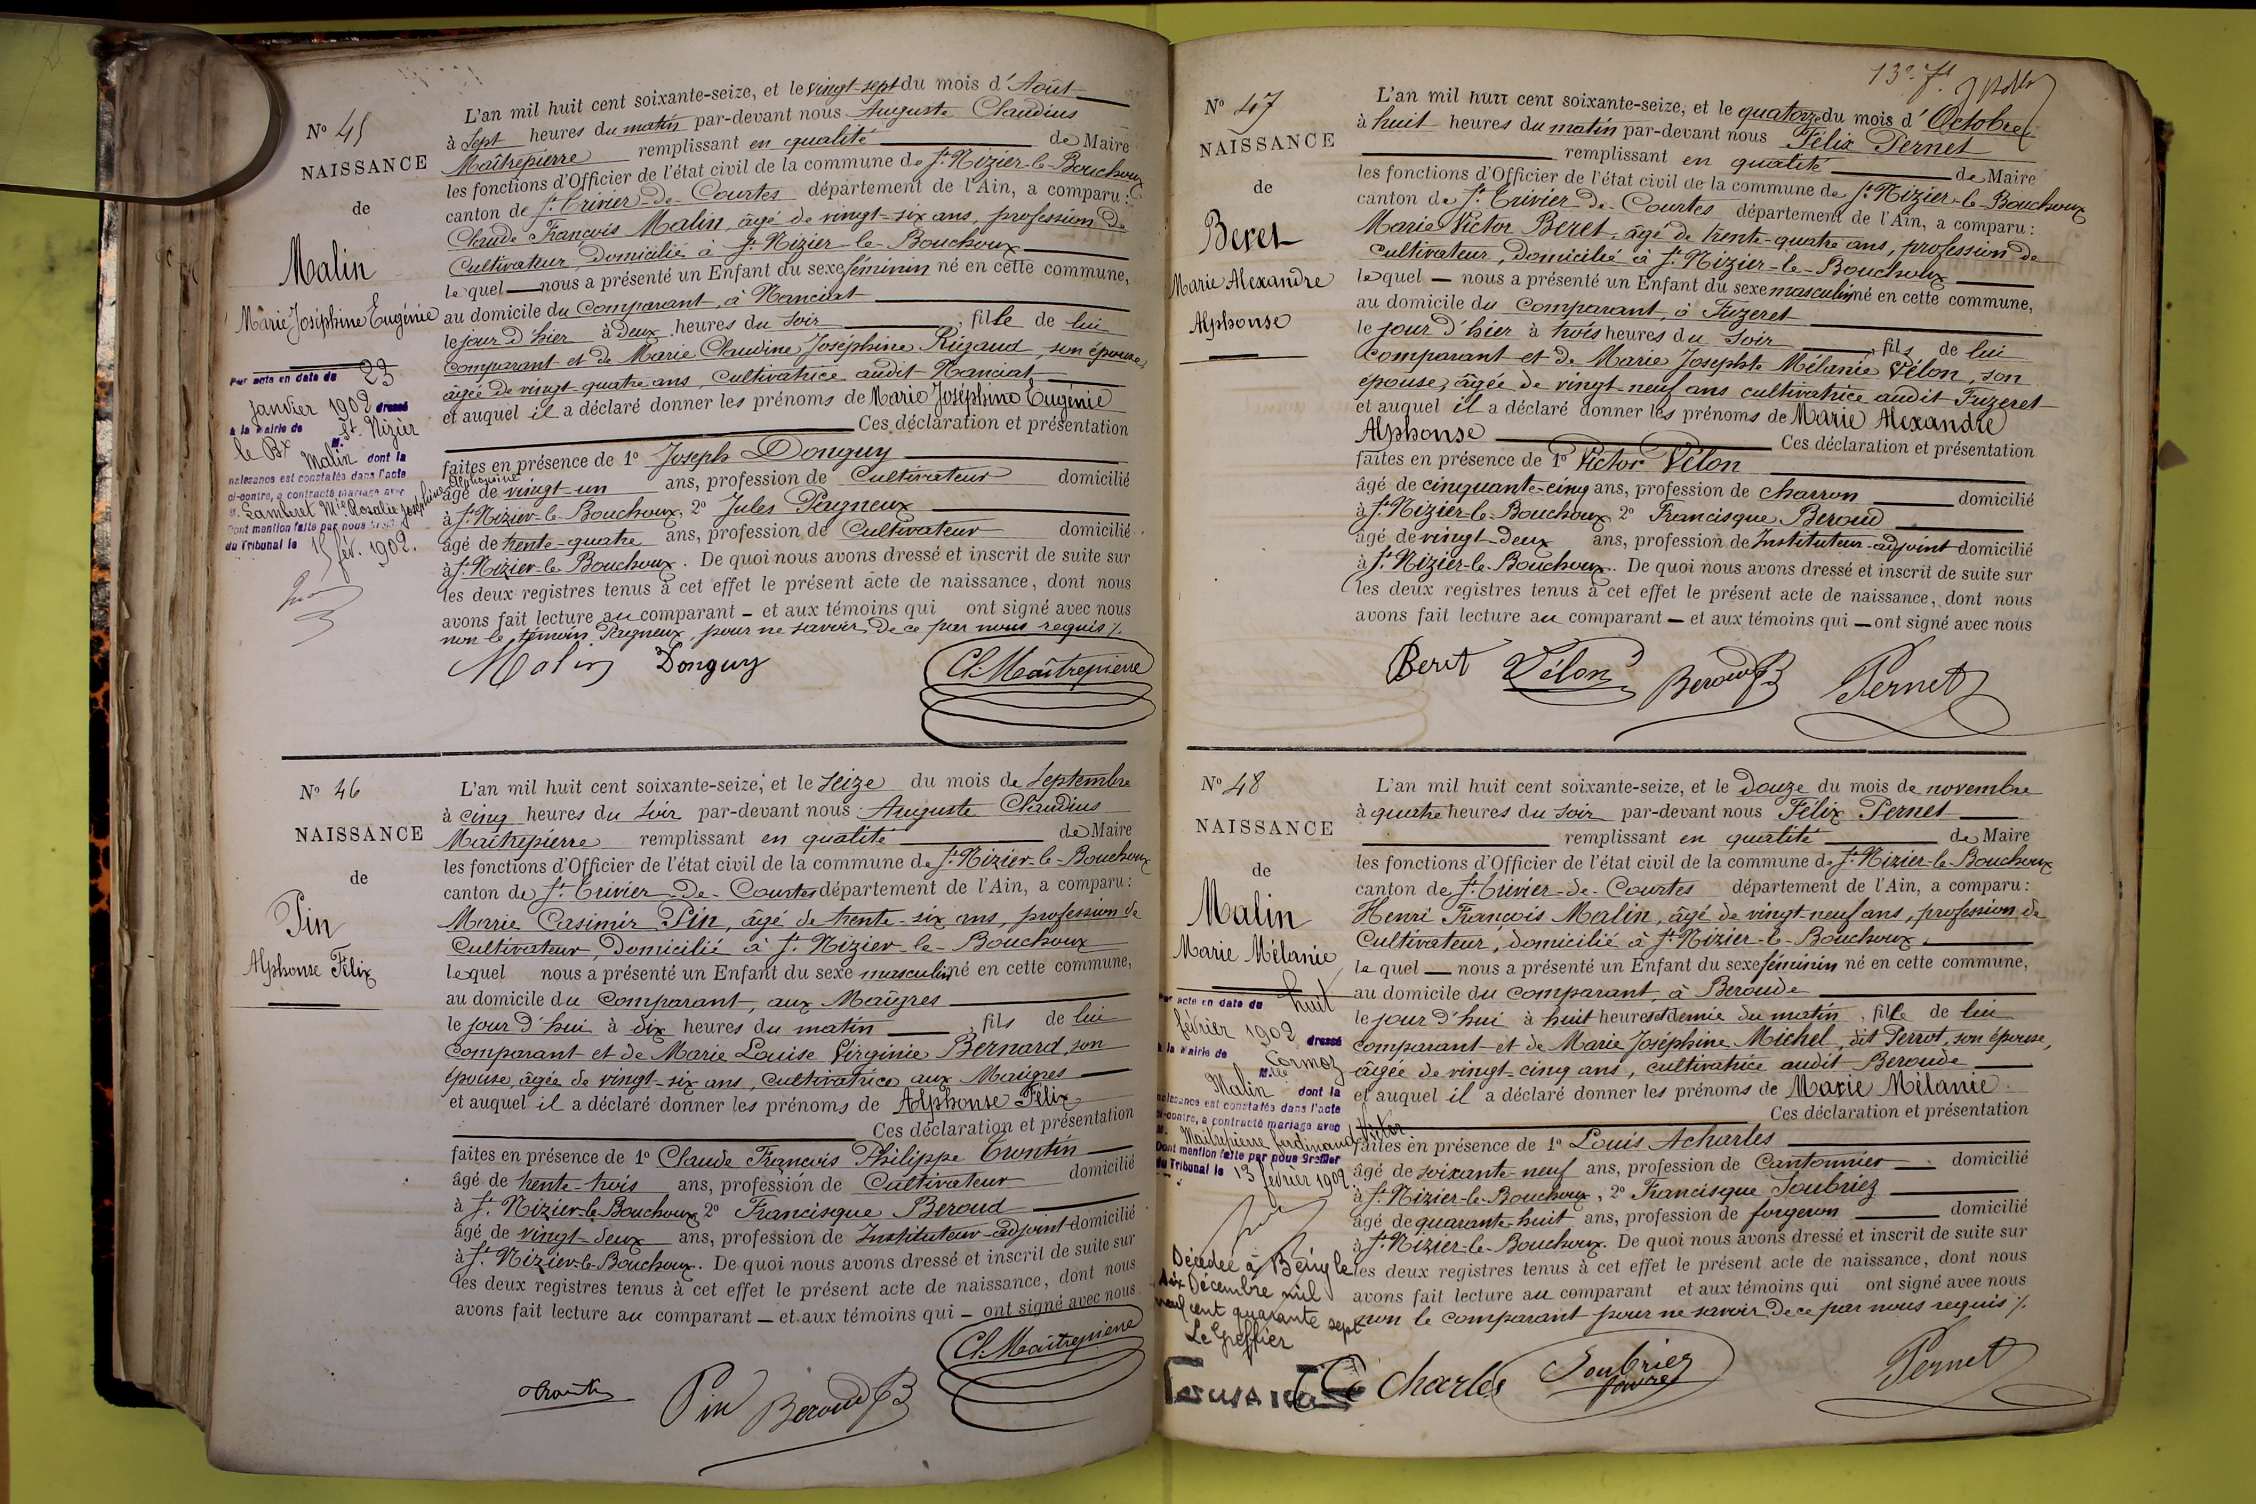 N° 45
NAISSANCE
de
Malin
Marie Joséphine Eugénie
Par acte en date du 23
janvier 1902 dressé
à la Mairie de St. Nizier
le Bx M.
Malin dont la
naissance est constatée dans l'acte
ci-contre, a contracté mariage avec
M. Lamberet Mie Rosalie Joséphine Alphonsine
Dont mention faite par nous
du Tribunal le 15 fév. 1902.
L'an mil huit cent soixante-seize, et le vingt-sept du mois d'Août
à sept heures du matin par-devant nous Auguste Claudius
Maîtrepierre remplissant en qualité de Maire
les fonctions d'Officier de l'état civil de la commune de St. Nizier-le-Bouchoux
canton de St. Trivier-de-Courtes département de l'Ain, a comparu :
Claude François Malin, âgé de vingt-six ans, profession de
Cultivateur, domicilié à St. Nizier-le-Bouchoux
lequel nous a présenté un Enfant du sexe féminin né en cette commune,
au domicile du comparant, à Nanciat
le jour d'hier à deux heures du soir, fille de lui
comparant et de Marie Claudine Joséphine Rigaud, son épouse,
âgée de vingt-quatre ans, cultivatrice audit Nanciat
et auquel il a déclaré donner les prénoms de Marie Joséphine Eugénie
Ces déclaration et présentation
faites en présence de 1° Joseph Donguy
âgé de vingt-un ans, profession de Cultivateur domicilié
à St. Nizier-le-Bouchoux, 2° Jules Pagneux
âgé de trente-quatre ans, profession de Cultivateur domicilié
à St. Nizier-le-Bouchoux. De quoi nous avons dressé et inscrit de suite sur
les deux registres tenus à cet effet le présent acte de naissance, dont nous
avons fait lecture au comparant – et aux témoins qui ont signé avec nous
non le témoin Pagneux, pour ne savoir de ce par nous requis %.
Malin Donguy Cl. Maîtrepierre
N° 46
NAISSANCE
de
Pin
Alphonse Félix
L'an mil huit cent soixante-seize, et le seize du mois de septembre
à cinq heures du soir par-devant nous Auguste Claudius
Maîtrepierre remplissant en qualité de Maire
les fonctions d'Officier de l'état civil de la commune de St. Nizier-le-Bouchoux
canton de St. Trivier-de-Courtes département de l'Ain, a comparu :
Marie Casimir Pin, âgé de trente-six ans, profession de
Cultivateur, domicilié à St. Nizier-le-Bouchoux
lequel nous a présenté un Enfant du sexe masculin né en cette commune,
au domicile du comparant, aux Maigres
le jour d'hui à dix heures du matin, fils de lui
comparant et de Marie Louise Virginie Bernard, son
épouse, âgée de vingt-six ans, cultivatrice aux Maigres
et auquel il a déclaré donner les prénoms de Alphonse Félix
Ces déclaration et présentation
faites en présence de 1° Claude François Philippe Trontin
âgé de trente-trois ans, profession de Cultivateur domicilié
à St. Nizier-le-Bouchoux 2° Francisque Beroud
âgé de vingt-deux ans, profession de Instituteur-adjoint domicilié
à St. Nizier-le-Bouchoux. De quoi nous avons dressé et inscrit de suite sur
les deux registres tenus à cet effet le présent acte de naissance, dont nous
avons fait lecture au comparant – et aux témoins qui – ont signé avec nous
Cl. Maîtrepierre
Pin Beroud
13e. f.
N° 47
NAISSANCE
de
Beret
Marie Alexandre
Alphonse
L'an mil huit cent soixante-seize, et le quatorze du mois d'Octobre
à huit heures du matin par-devant nous Félix Pernet
remplissant en qualité de Maire
les fonctions d'Officier de l'état civil de la commune de St. Nizier-le-Bouchoux
canton de St. Trivier-de-Courtes département de l'Ain, a comparu :
Marie Victor Beret, âgé de trente-quatre ans, profession de
cultivateur, domicilié à St. Nizier-le-Bouchoux
lequel – nous a présenté un Enfant du sexe masculin né en cette commune,
au domicile du comparant, à Fuzeret
le jour d'hier à trois heures du soir, fils de lui
comparant et de Marie Josephte Mélanie Vélon, son
épouse, âgée de vingt-neuf ans cultivatrice audit Fuzeret
et auquel il a déclaré donner les prénoms de Marie Alexandre
Alphonse Ces déclaration et présentation
faites en présence de 1° Victor Vélon
âgé de cinquante-cinq ans, profession de charron domicilié
à St. Nizier-le-Bouchoux 2° Francisque Beroud
âgé de vingt-deux ans, profession de Instituteur-adjoint domicilié
à St. Nizier-le-Bouchoux. De quoi nous avons dressé et inscrit de suite sur
les deux registres tenus à cet effet le présent acte de naissance, dont nous
avons fait lecture au comparant – et aux témoins qui – ont signé avec nous
Beret Vélon Beroud Pernet
N° 48
NAISSANCE
de
Malin
Marie Mélanie
Par acte en date du huit
février 1902 dressé
à la Mairie de Cormoz
M.lle
Malin dont la
naissance est constatée dans l'acte
ci-contre, a contracté mariage avec
M. Maitrepierre Ferdinand Victor
Dont mention faite par nous Greffier
du Tribunal le 13 février 1902
Décédée à Beingle
dix Décembre mil
neuf cent quarante sept
Le Greffier
L'an mil huit cent soixante-seize, et le Douze du mois de novembre
à quatre heures du soir par-devant nous Félix Pernet
remplissant en qualité de Maire
les fonctions d'Officier de l'état civil de la commune de St. Nizier-le-Bouchoux
canton de St. Trivier-de-Courtes département de l'Ain, a comparu :
Henri François Malin, âgé de vingt-neuf ans, profession de
Cultivateur, domicilié à St. Nizier-le-Bouchoux,
lequel – nous a présenté un Enfant du sexe féminin né en cette commune,
au domicile du comparant, à Beroude
le jour d'hui à huit heures et demie du matin, fille de lui
comparant et de Marie Joséphine Michel, dit Perrot, son épouse,
âgée de vingt-cinq ans, cultivatrice audit Beroude
et auquel il a déclaré donner les prénoms de Marie Mélanie.
Ces déclaration et présentation
faites en présence de 1° Louis Acharles
âgé de soixante-neuf ans, profession de Cantonnier domicilié
à St. Nizier-le-Bouchoux, 2° Francisque Soubriez
âgé de quarante-huit ans, profession de forgeron domicilié
à St. Nizier-le-Bouchoux. De quoi nous avons dressé et inscrit de suite sur
les deux registres tenus à cet effet le présent acte de naissance, dont nous
avons fait lecture au comparant et aux témoins qui ont signé avec nous
non le comparant pour ne savoir de ce par nous requis %.
charles Soubriez Pernet